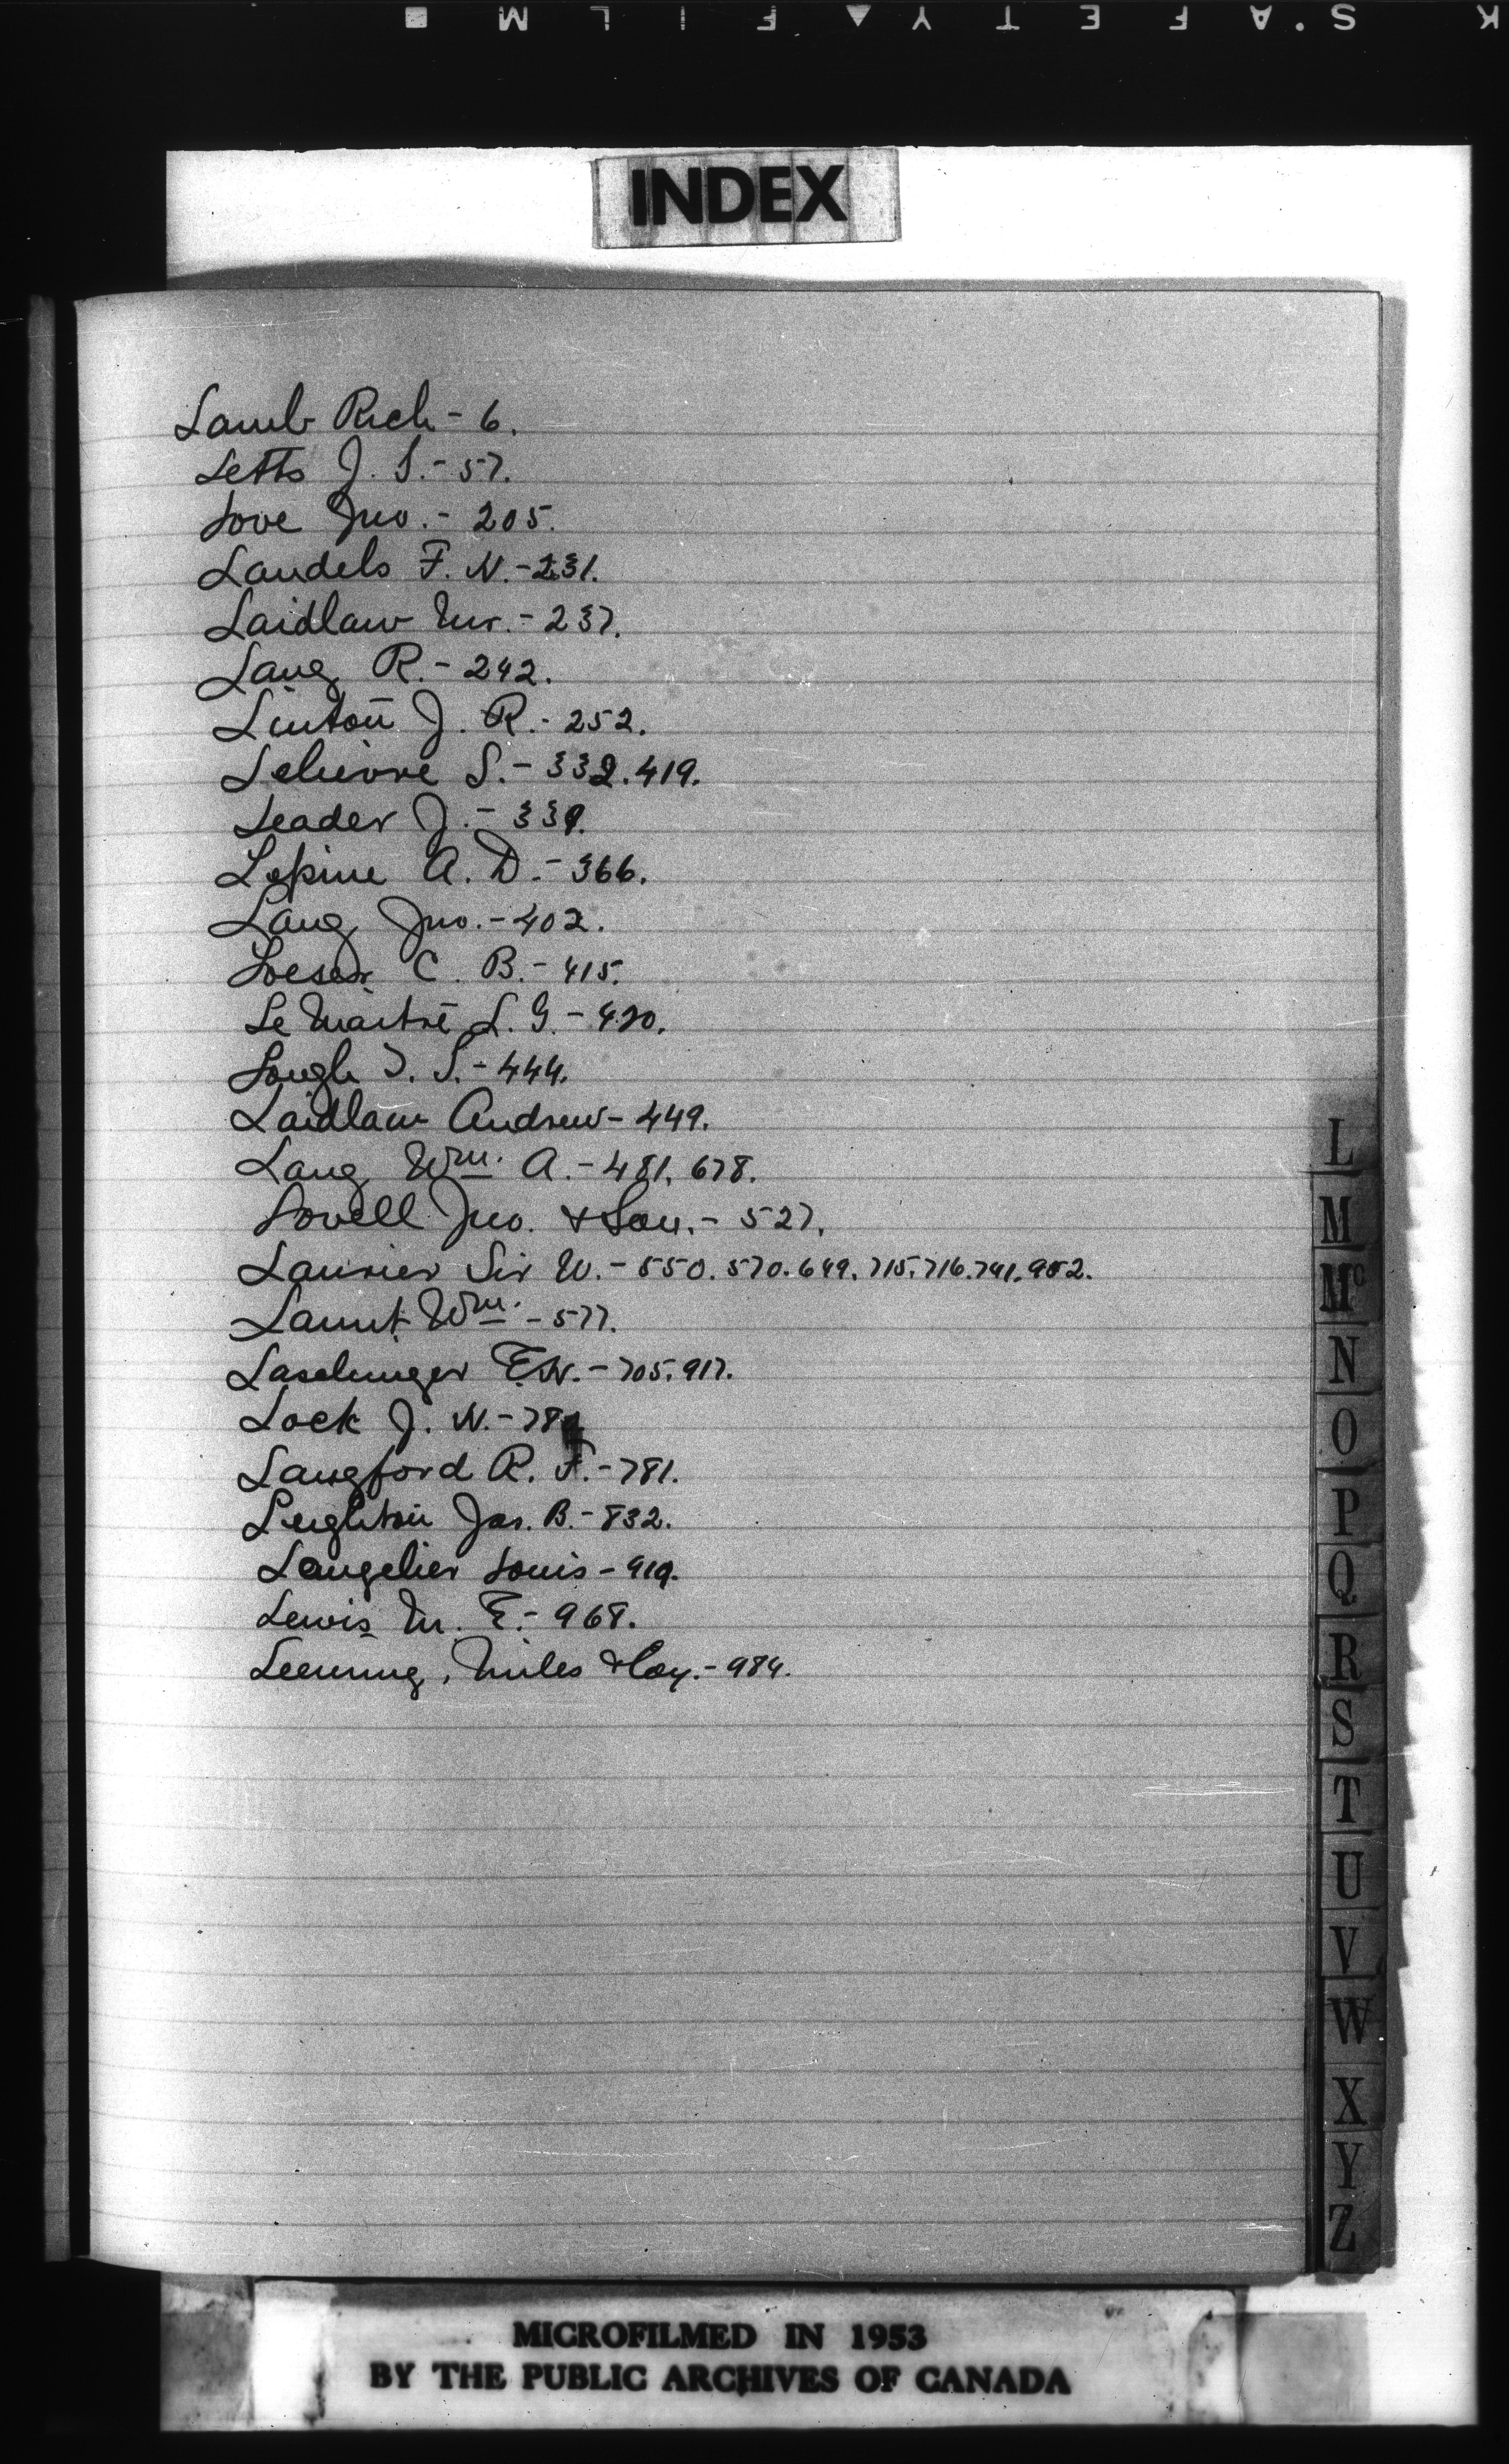 K S'AFETY▲FILM ■
INDEX
Lamb Rich - 6.
Letts J. S. - 57.
Love Jno. - 205.
Landels F. N. - 231.
Laidlaw Mr. - 237.
Lang R. - 242.
Linton J. R. - 252.
Lelievre S. - 332. 419.
Leader J. - 339.
Lepine A. D. - 366.
Lang Jno. - 402.
Loeser C. B. - 415.
Le Maitre L. G. - 420.
Lough T. S. - 444.
Laidlaw Andrew - 449.
Lang Wm. A. - 481. 678.
Lovell Jno. & Son. - 527.
Laurier Sir W. - 550. 570. 649. 715. 716. 741. 952.
Laurit Wm. - 577.
Laschinger E.W. - 705. 917.
Lock J. N. - 
Langford R. F. - 781.
Leighton Jas. B. - 832.
Langelier Louis - 919.
Lewis M. E. - 968.
Leeming, Miles & Coy. - 984.
L
M
Mc
N
O
P
Q
R
S
T
U
V
W
X
Y
Z
MICROFILMED IN 1953
BY THE PUBLIC ARCHIVES OF CANADA